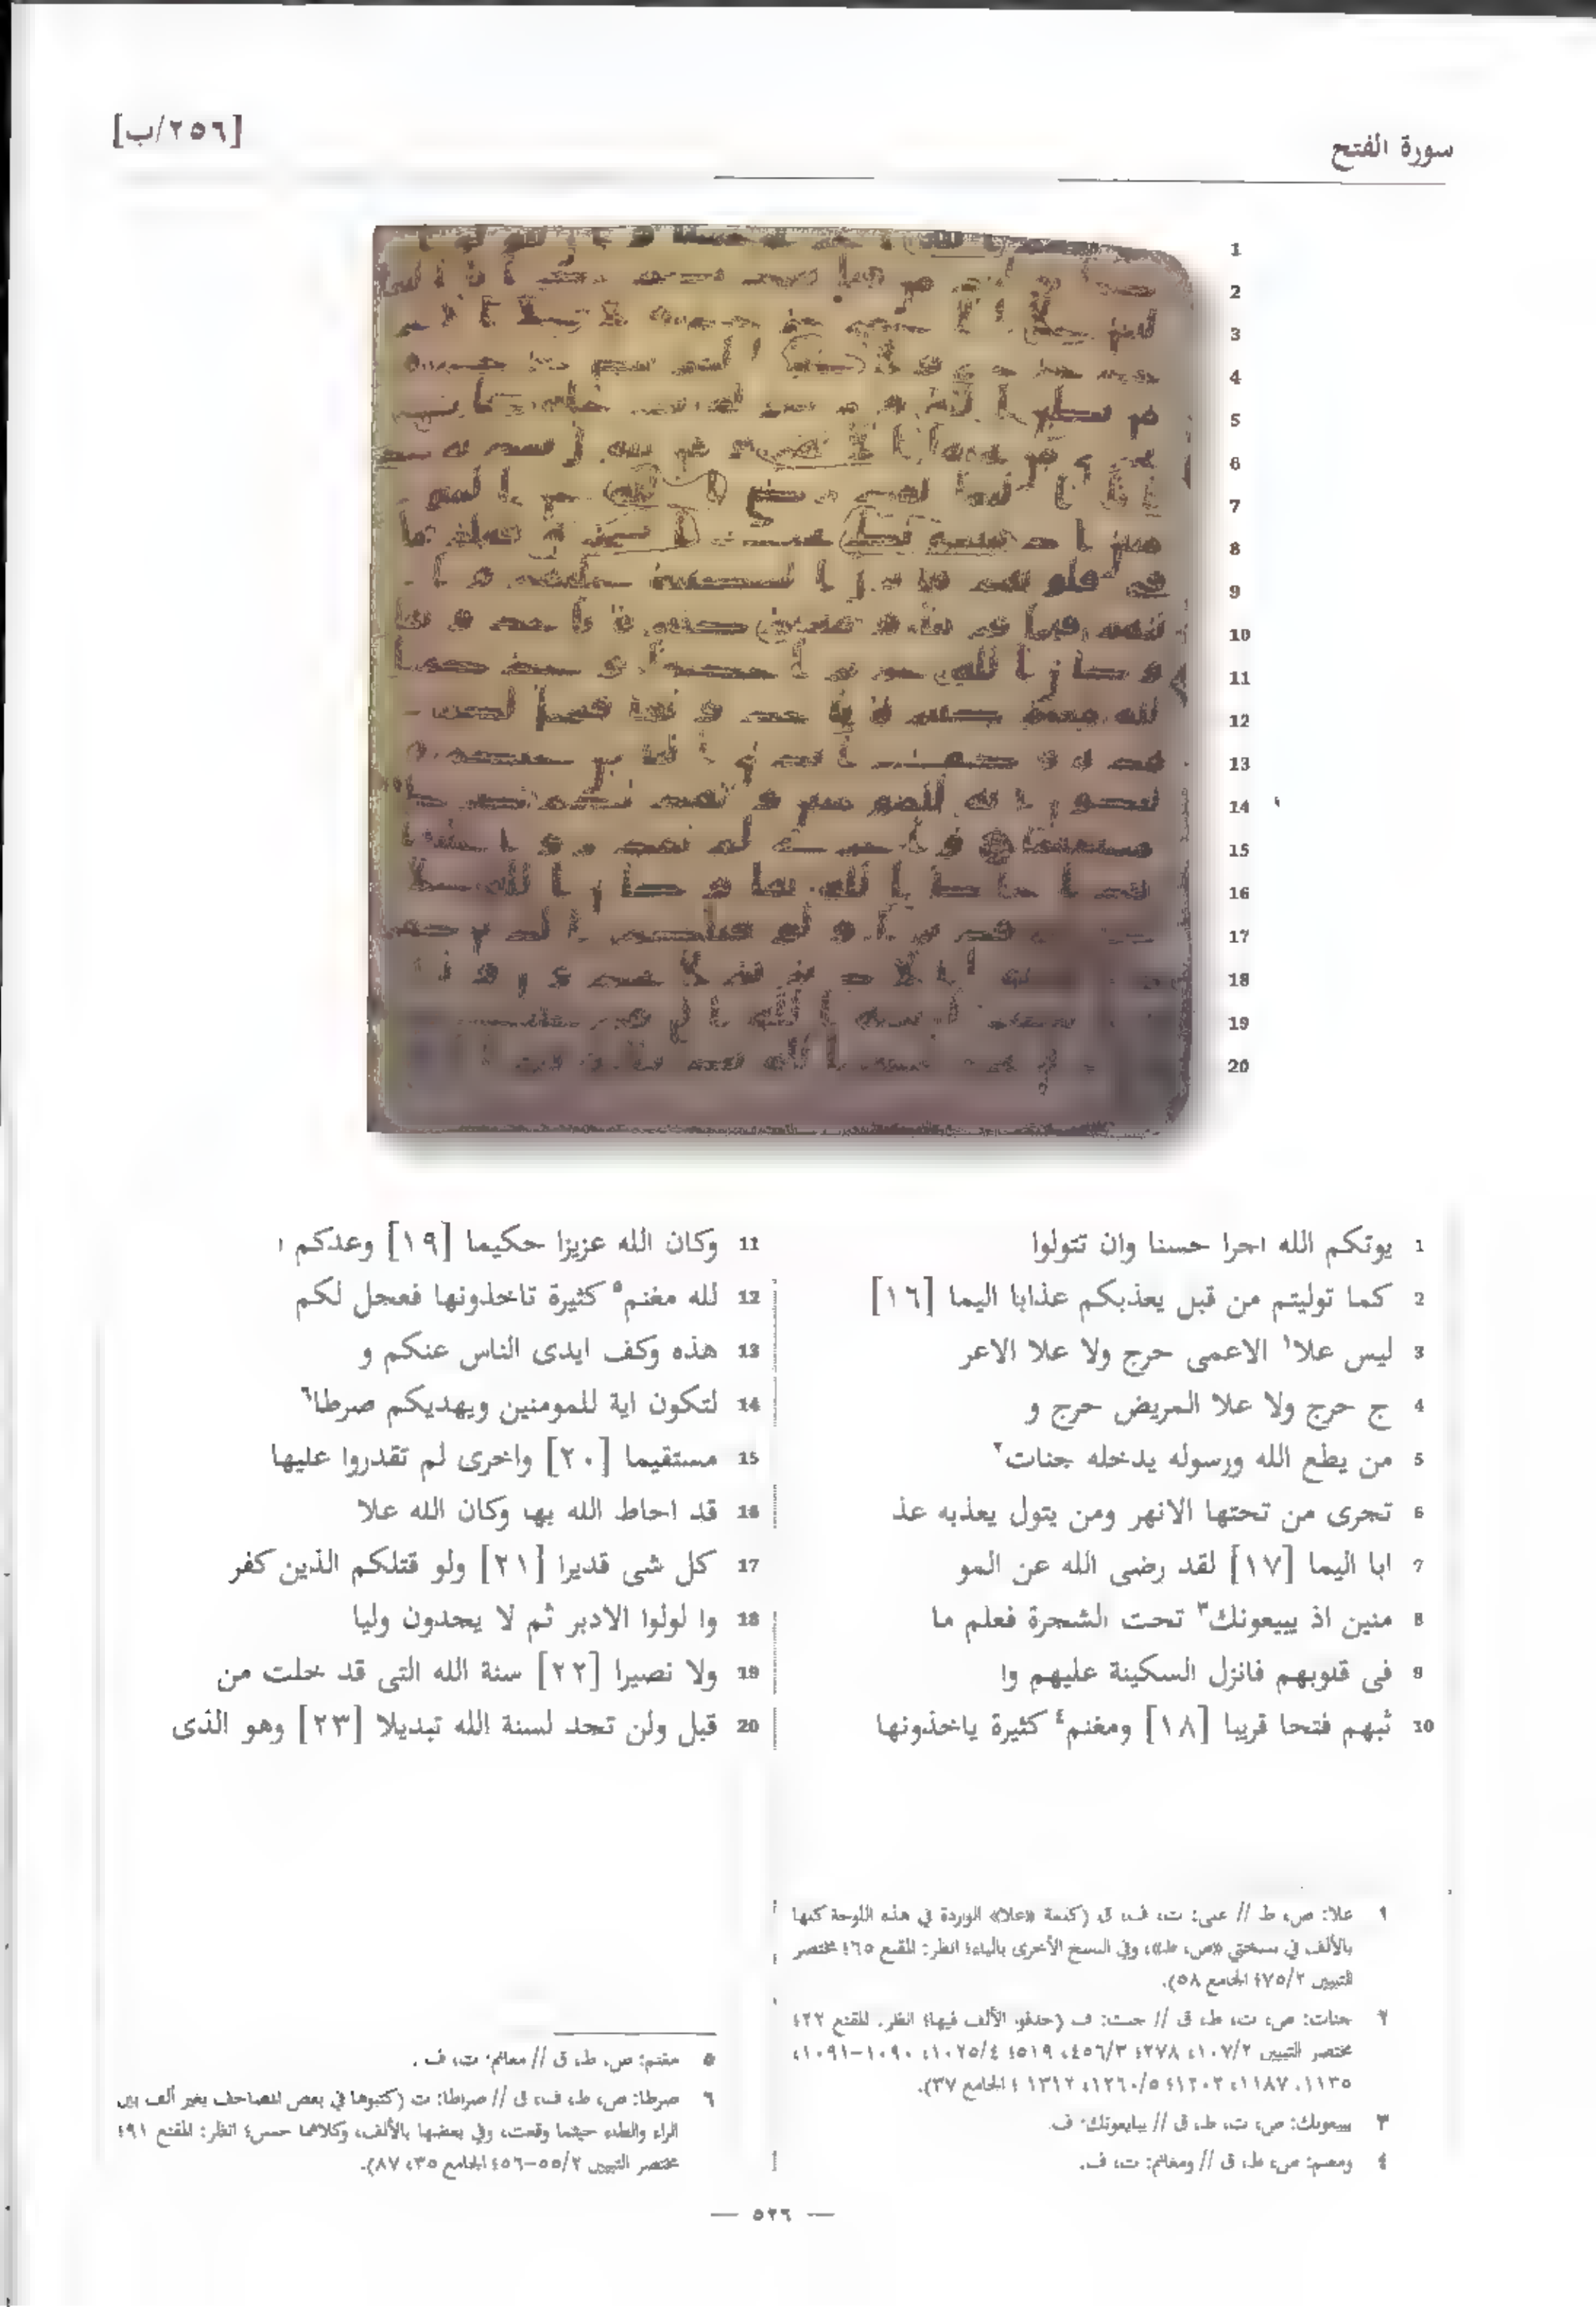 [٢٥٦/ب]
سورة الفتح
1 يوتكم الله اجرا حسنا وان تتولوا
2 كما توليتم من قبل يعذبكم عذابا اليما [١٦]
3 ليس علا١ الاعمى حرج ولا علا الاعر
4 ج حرج ولا علا المريض حرج و
5 من يطع الله ورسوله يدخله جنات٢
6 تجرى من تحتها الانهر ومن يتول يعذبه عذ
7 ابا اليما [١٧] لقد رضى الله عن المو
8 منين اذ يبيعونك٣ تحت الشجرة فعلم ما
9 فى قلوبهم فانزل السكينة عليهم وا
10 ثبهم فتحا قريبا [١٨] ومغنم٤ كثيرة ياخذونها
11 وكان الله عزيزا حكيما [١٩] وعدكم ا
12 لله مغنم٥ كثيرة تاخذونها فعجل لكم
13 هذه وكف ايدى الناس عنكم و
14 لتكون اية للمومنين ويهديكم صرطا٦
15 مستقيما [٢٠] واخرى لم تقدروا عليها
16 قد احاط الله بها وكان الله علا
17 كل شى قديرا [٢١] ولو قتلكم الذين كفر
18 وا لولوا الادبر ثم لا يجدون وليا
19 ولا نصيرا [٢٢] سنة الله التى قد خلت من
20 قبل ولن تجد لسنة الله تبديلا [٢٣] وهو الذى
١ علا: ص، ط // على: ت، ف، ق (كلمة «علا» الواردة في هذه اللوحة كلها
بالألف في نسختي «ص، ط»، وفي النسخ الأخرى بالياء؛ انظر: المقنع ٦٥؛ مختصر
التبيين ٧٥/٢؛ الجامع ٥٨).
٢ جنات: ص، ت، ط، ق // جنت: ف (حذفوا الألف فيها؛ انظر: المقنع ٢٢؛
مختصر التبيين ١٠٧/٢، ٢٧٨؛ ٤٥٦/٣، ٥١٩؛ ١٠٢٥/٤، ١٠٩٠-١٠٩١،
١١٣٥، ١١٨٧، ١٢٠٢؛ ١٢٦٠/٥، ١٣١٢؛ الجامع ٣٧).
٣ يبيعونك: ص، ت، ط، ق // يبايعونك: ف.
٤ ومغنم: ص، ط، ق // ومغانم: ت، ف.
٥ مغنم: ص، ط، ق // مغانم: ت، ف.
٦ صرطا: ص، ط، ف، ق // صراطا: ت (كتبوها في بعض المصاحف بغير ألف بين
الراء والطاء حيثما وقعت، وفي بعضها بالألف، وكلاهما حسن؛ انظر: المقنع ٩١؛
مختصر التبيين ٥٥/٢-٥٦؛ الجامع ٣٥، ٨٧).
— ٥٢٦ —